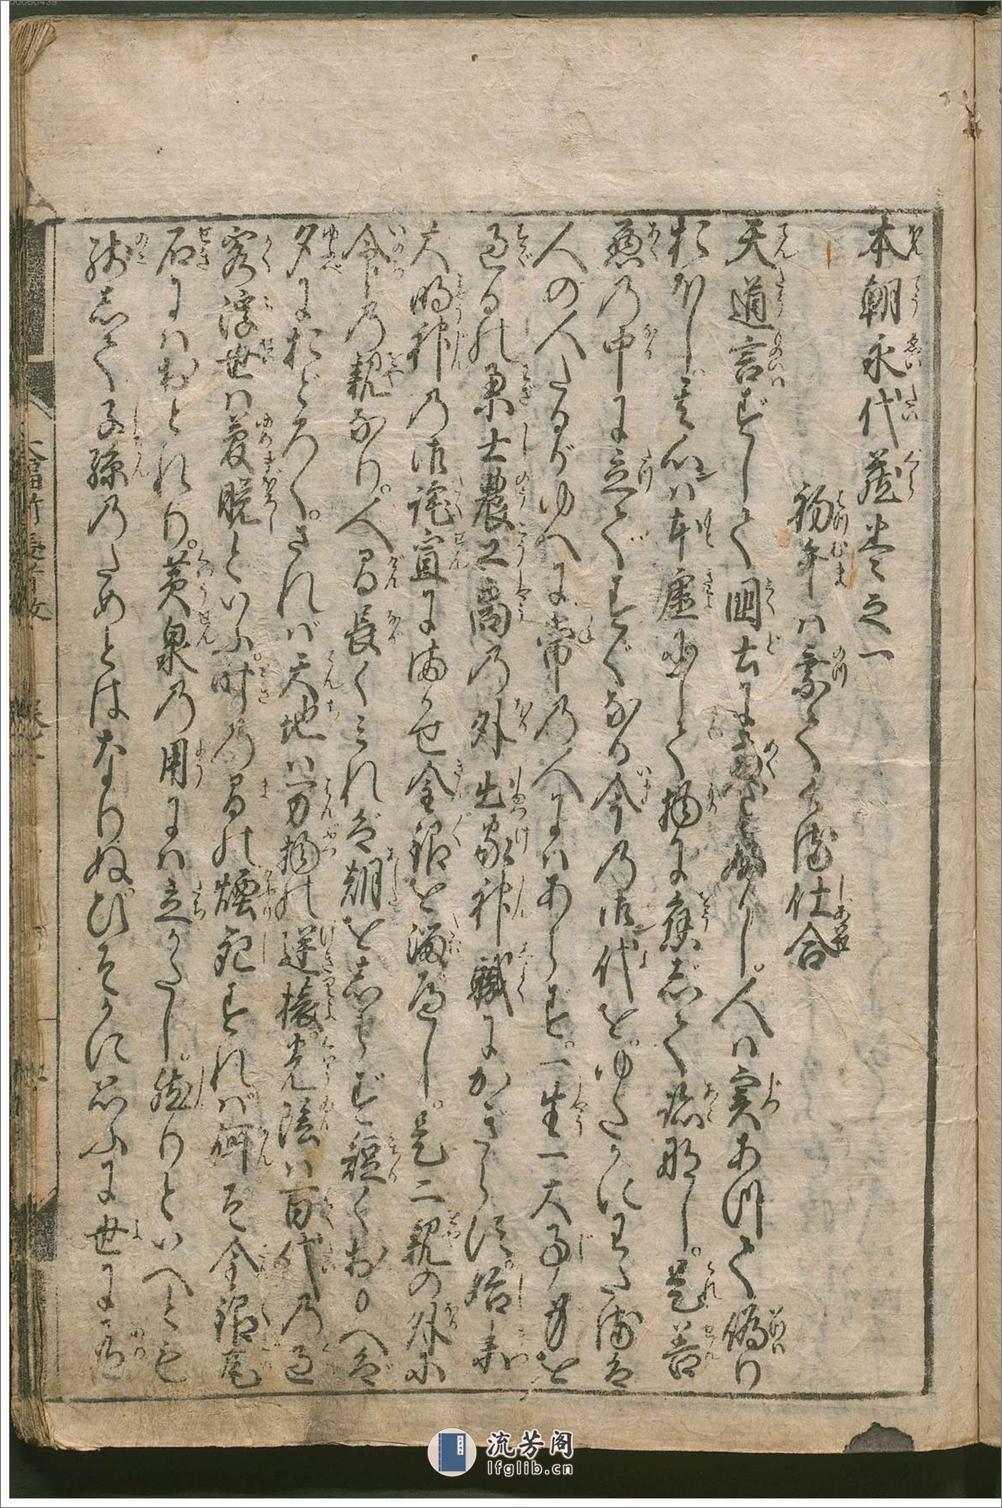 本朝永代蔵巻之一
初午は乗てくる仕合
天道言ずして国土に恵みふかし。人は実あつて偽り
おほし。其心は本虚にして物に応じて跡なし。是善
悪の中に立てすぐなる今の御代を。ゆたかにわたるは
人の人たるがゆへに常の人にはあらず。一生一大事身を
過るの業士農工商の外出家神職にかぎらず。始末
大明神の御託宣にまかせ金銀を溜べし。是二親の外に
命の親なり。人間長くみれば朝をしらず短くおもへば
夕におどろく。されば天地は万物の逆旅光陰は百代の過
客浮世は夢幻といふ。時の間の煙死すれば何ぞ金銀瓦
石にはおとれり。黄泉の用には立がたし。然りといへども
残して子孫のためとはなりぬひそかに思ふに世に有
大福新長者教
巻一
流芳阁
lfglib.cn